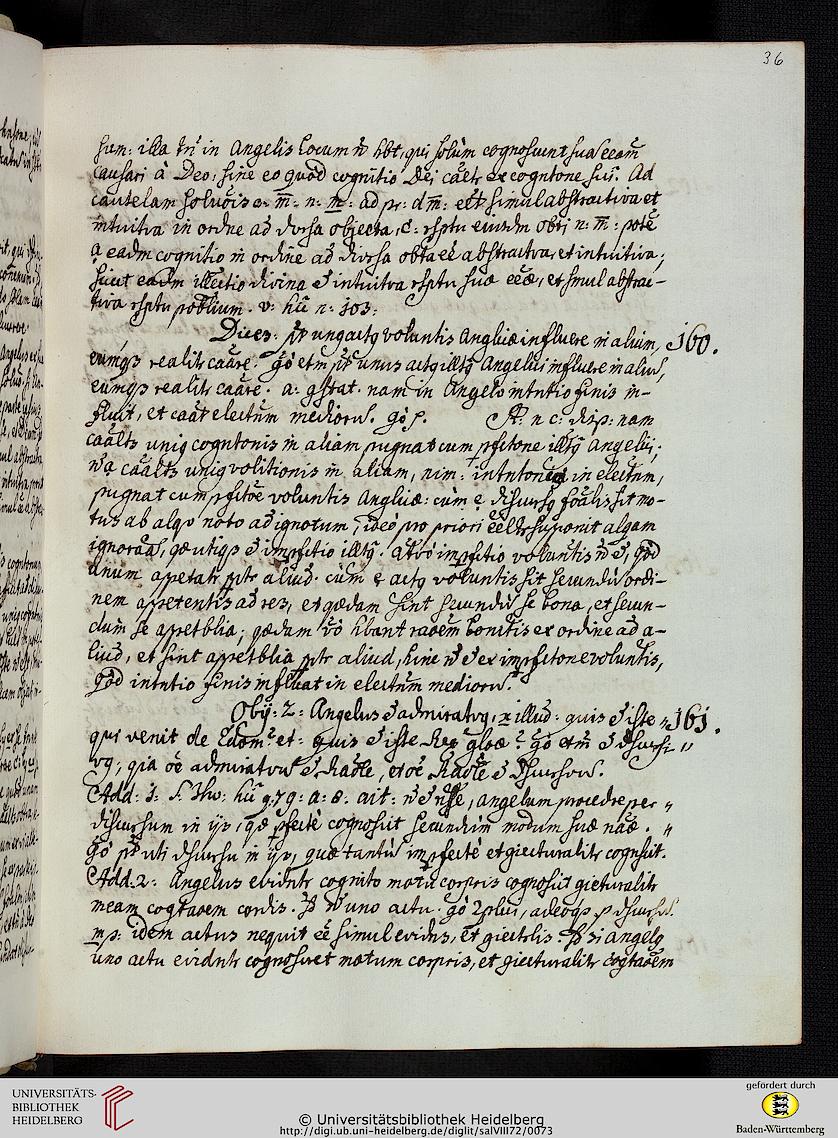 36
sum: illa tn̄ in Angelis locum n̄ hbt, qui solùm cognoscunt sua eeām
causari à Deo, sine eo quòd cognitio Dei caēt ex cogntone sui. Ad
cautelam
intuitva in ordne ad dvrsa objecta, c: rsptu eiusdm obti n: m̄: potē
a eadm cognitio in ordine ad divrsa obta eē abstractva, et intuitiva;
sicut eadm illectio divina ē intuitva rsptu suæ eēæ, et simul abstrac-
tiva rsptu possblium. v: hīc n: 103.
Dices: pt̄ unq actq voluntis Anglicæ influere in alium, 160.
eumqз realitr caāre. gō etm pt̄ unus actq illtq Angelici influere in aliū,
eumqз realitr caāre. a: gstat. nam in Angelo intntio finis in-
fluit, et caāt electm̄ mediorū. gō p. R: n c: disp: nam
caālts uniq cogntonis in aliam pugnat cum pfctone illtq Angelici;
n̄ a caālts uniq volitionis in aliam, nim: intntonis in electm̄,
pugnat cum pfctōe voluntis Anglicæ: cùm e discursq foālis sit mo-
tus ab alqo noto ad ignotum, ideò pro priori eēltr supponit alqam
ignorāā, qæ utiqз ē impfctio illtq. at vò impfctio voluntis n̄ ē, qòd
unum appetatr pptr aliud. cùm e actq voluntis sit secundū ordi-
nem appetentis ad res, et quædam sint secundū se bona, et secun-
dùm se appetblia; qædam vò hbant raoēm bonitis ex ordine ad a-
liud, et sint appetblia pptr aliud, hinc n̄ ē ex impfctone voluntis,
qòd intntio finis influat in electm̄ mediorū.
Obij: 2: Angelus ē admiratvq, x illud: quis ē iste 161.
qui venit de Edom? et: quis ē iste Rex gloæ? gō etm̄ ē dscursi-
vq; qia oē admiratvū ē Raōle, et oē Raōle ē dscursivū.
Add: 1: S. Tho: hīc q. 79: a: 8: ait: n̄ ē nsse, angelum procedre per
discursum in ijs, qæ pfectè cognoscit secundùm modum suæ naæ.
gō pt̄ uti dscursu in ijs, quæ tantū impfectè et giecturalitr cognscit.
Add: 2: Angelus evidntr cognito motu corpris cognoscit giecturalitr
meam cogtaoēm cordis. Sd n̄ uno actu. gō 2plici, adeoqз p dscursū.
mp: idem actus nequit eē simul evidns, et giectrlis. Sd si angelq
uno actu evidntr cognosceret motum corpris, et giecturalitr cogtaoēm
UNIVERSITÄTS-
BIBLIOTHEK
HEIDELBERG
© Universitätsbibliothek Heidelberg
http://digi.ub.uni-heidelberg.de/diglit/salVIII72/0073
gefördert durch
Baden-Württemberg